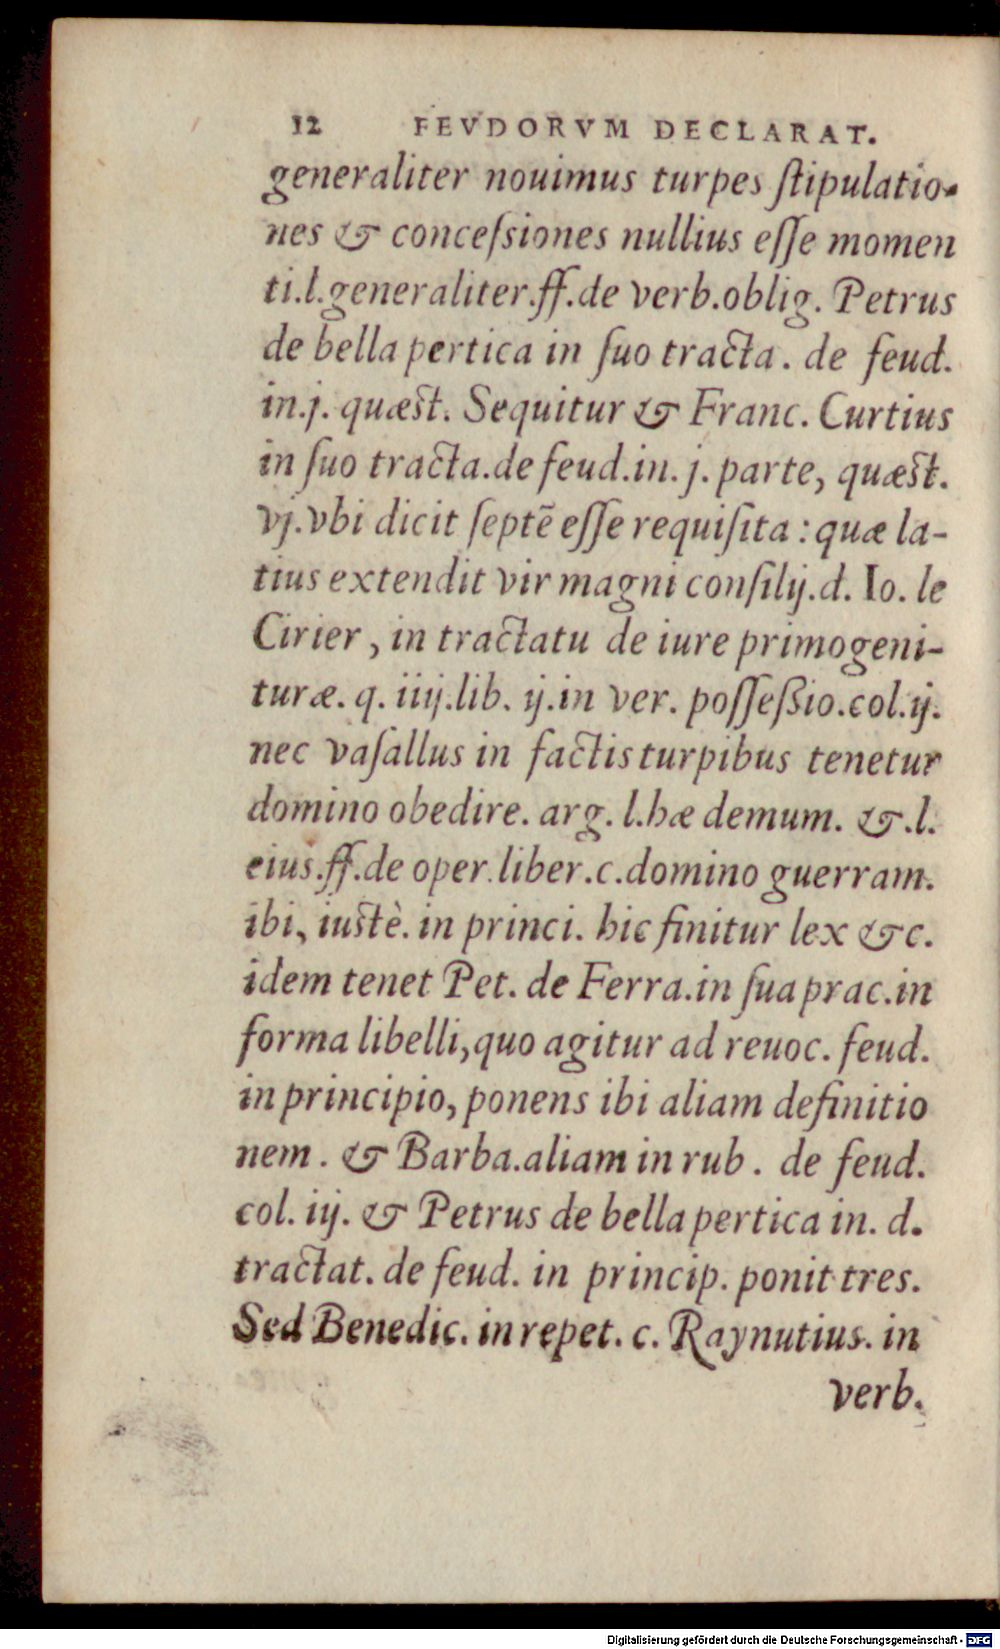 12 FEVDORVM DECLARAT.
generaliter nouimus turpes ſtipulatio-
nes & conceſsiones nullius eſſe momen
ti.l.generaliter.ff.de verb.oblig. Petrus
de bella pertica in ſuo tracta. de feud.
in.j. quæst. Sequitur & Franc. Curtius
in ſuo tracta.de feud.in. j. parte, quæst.
vj.vbi dicit ſeptē eſſe requiſita : quæ la-
tius extendit vir magni conſilij.d. Io. le
Cirier, in tractatu de iure primogeni-
turæ. q. iiij.lib. ij.in ver. poſſeßio.col.ij.
nec vaſallus in factis turpibus tenetur
domino obedire. arg. l.hæ demum. &.l.
eius.ff.de oper.liber.c.domino guerram.
ibi, iustè. in princi. hic finitur lex &c.
idem tenet Pet. de Ferra.in ſua prac.in
forma libelli,quo agitur ad reuoc. feud.
in principio, ponens ibi aliam definitio
nem. & Barba.aliam in rub. de feud.
col. iij. & Petrus de bella pertica in. d.
tractat. de feud. in princip. ponit tres.
Sed Benedic. in repet. c. Raynutius. in
verb.
Digitalisierung gefördert durch die Deutsche Forschungsgemeinschaft - DFG